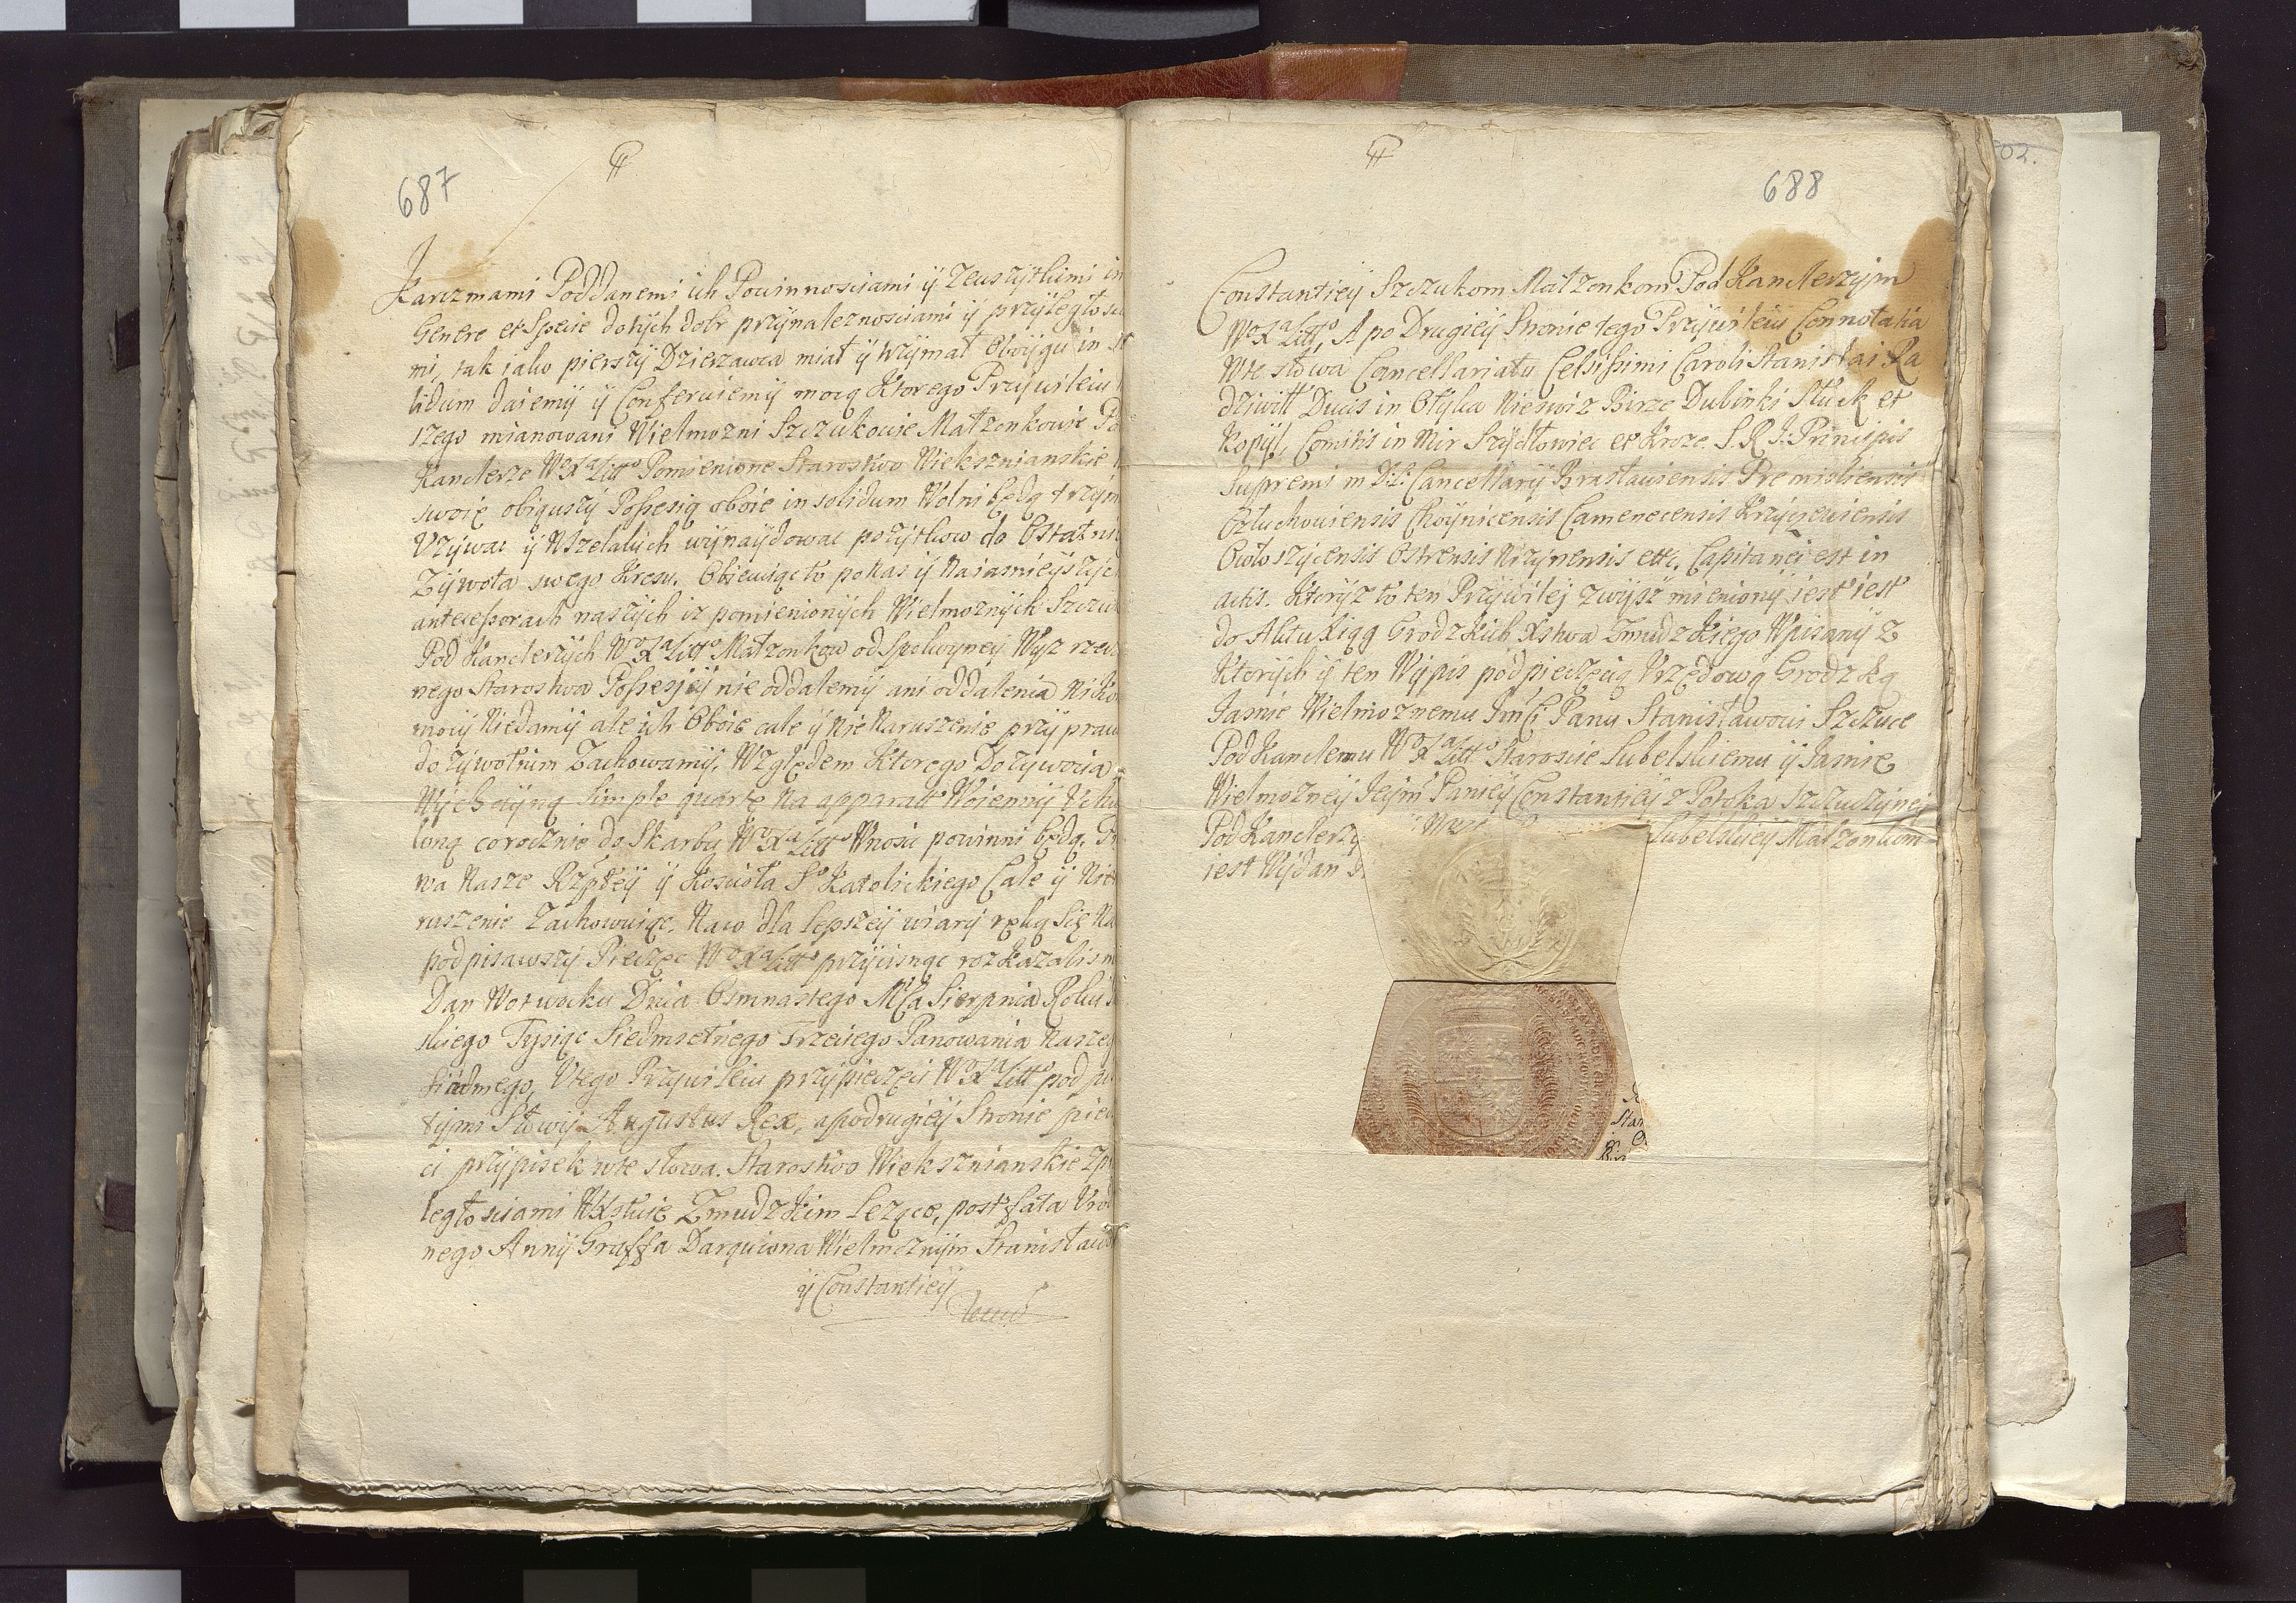 687
Karczmami Poddanemi ich Powinnosciami ÿ Zewszÿtkimi in
Genere et Specie dotÿch dobr przÿnaleznosciami ÿ przÿległosci
mi, tak iako pierszÿ Dzierzawca miał ÿ trzÿmał Oboÿgu in
lidum daiemÿ ÿ Conferuiemÿ mocą Ktorego Przÿwileiu
szego mianowani Wielmozni Szczukowie Małzonkowie Po
Kanclerze WoXaLitto Pomienione Starostwo Wiekszniańskie
swoię obiąwszÿ Possesią oboie in solidum Wolni będą trzÿm
Vzÿwac ÿ Wszelakich wÿnaÿdowac pozÿtkow do Ostatni
Zÿwota swego Kresu. Obiecuiąc to po Nas ÿ Naiasnieÿszÿch
antecessorach naszÿch iz pomienionÿch Wielmoznÿch Szczu
Pod Kanclerzÿch WoXaLitto Małzonkow od Spokoÿney Wÿz rzec
nego Starostwa Possesjeÿ nie oddalemÿ ani oddalenia Niko
mocÿ Niedamÿ ale ich Oboie cale ÿ Nie Naruszenie przÿ praw
dozÿwotnim Zachowamÿ. Względem Ktorego Dozÿwocia
simple quartę Na apparatt Woiennÿ Vchw
loną corocznie do Skarbu WoXaLitto Wnosic powinni będą. Pr
wa Nasze Rzptteÿ ÿ Koscioła So Katolickiego Cale ÿ Nie
ruszenie Zachowuiąc. Naco dla lepszeÿ wiarÿ ręką Się Na
podpisawszÿ Pieczęc WoXaLitto przÿcisnąc rozkazalism
Dan Wotwocku Dnia Osmnastego Mca Sierpnia Roku
skiego Tysiąc Siedmsetnego Trzeciego Panowania Naszeg
siodmego, Vtego Przÿwileiu przÿ pieczęci WoXaLitto podpi
tÿmi Słowÿ Augustus Rex, apodrugieÿ Stronie piec
ci przÿpisek wte słowa. Starostwo Wiekszniańskie zp
ległosciami WXstwie Zmudzkim Lezące, post fata Vro
nego Annÿ Graffa Darquiona Wielmoznÿm Stanisław
ÿ Constancieÿ
688
Constancieÿ Szczukom Małzonkom Pod Kanclerzÿm
WoXaLitto, A po Drugieÿ Stronie tego Przÿwileiu Connotatia
Wte słowa Cancellariatu Celsissimi Caroli Stanislai Ra
dziwiłł Ducis in Olÿka Nieswiz Birze Dubinki Słuck et
Kopÿl, Comitis in Mir Szÿdłowiec et Kroze S. R. I. Principis
Supremi M. D. L. Cancellarÿ Brasłaviensis Premisliensis
Człuchoviensis Choÿnicensis Camenecensis Krzÿczeviensis
Osłoszÿcensis Ostrensis Nizÿnensis ettc. Capitanei est in
actis. Ktorÿz to ten Przÿwilej zwÿsz mienionÿ iest iest
do Akt Xiąg Grodzkich Xstwa Zmudzkiego Wpisanÿ z
Ktorÿch ÿ ten Wÿpis pod pieczęcią Vrzędową Grodzką
Jasnie Wielmoznemu Jmci Panu Stanisławowi Szczuce
Pod Kanclemu WoXaLitto Staroscie Lubelskiemu ÿ Jasnie
Wielmozneÿ Jeÿm Panieÿ Constancieÿ z Potoka Szczuczÿneÿ
Pod Kanclerzy Lubelskieÿ Małzonkom
iest Wÿdan